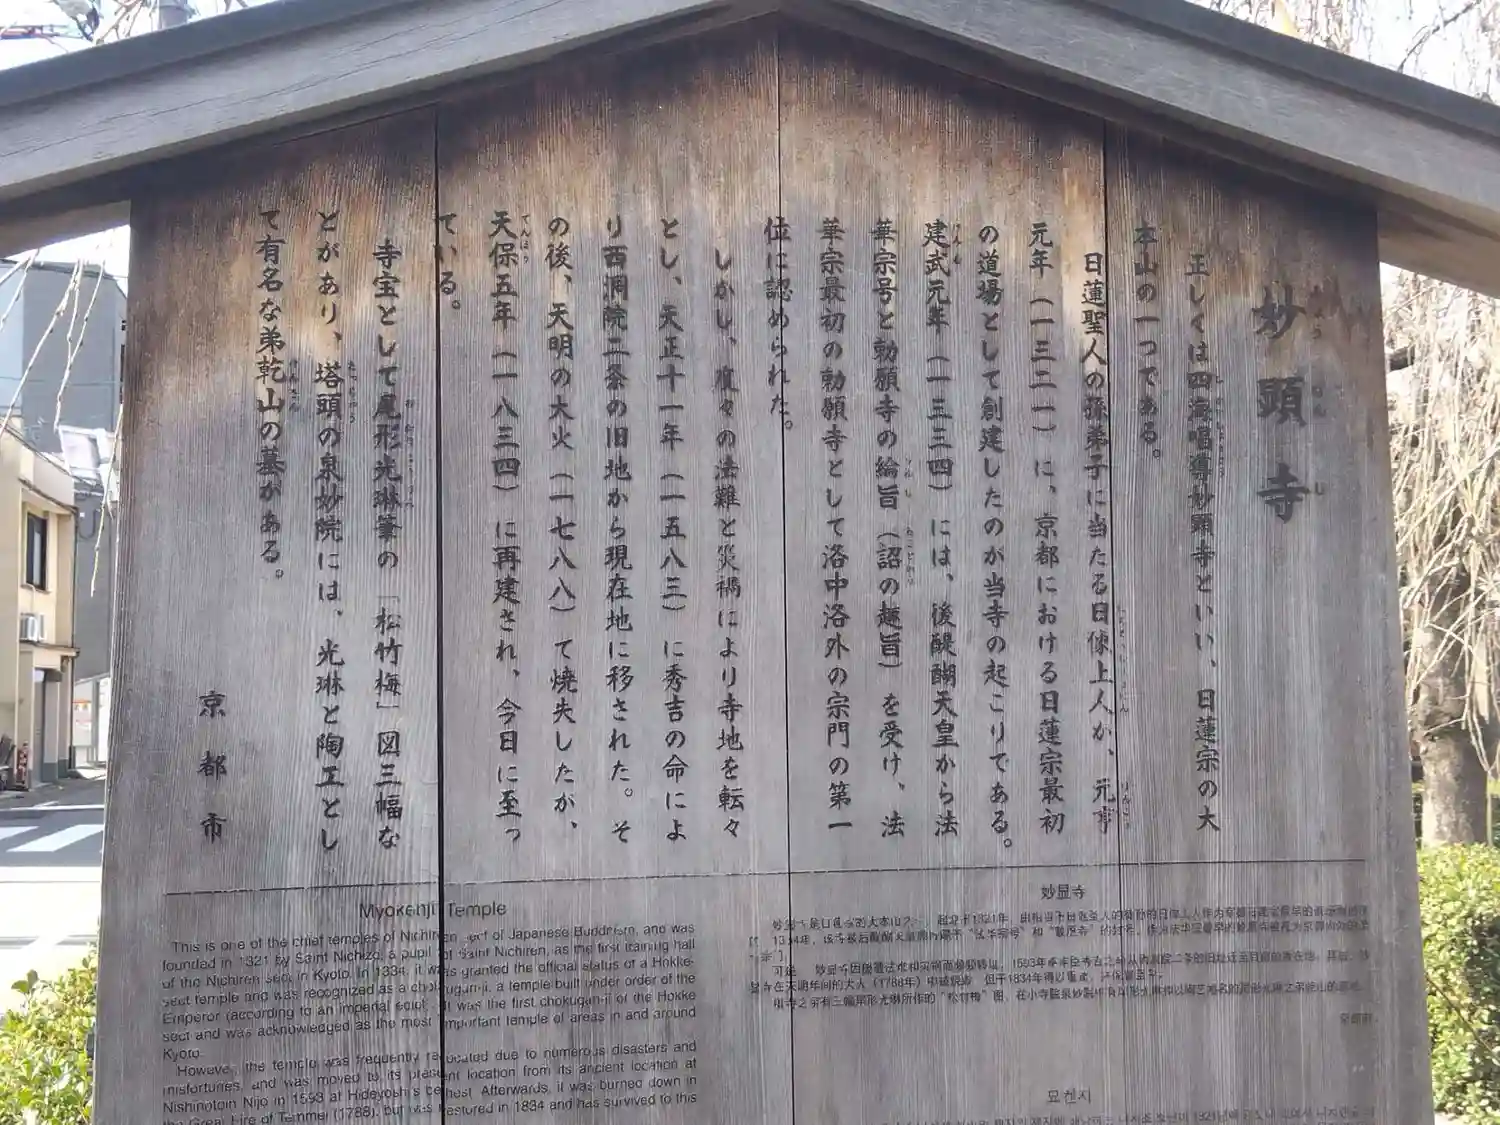 妙顕寺
正しくは四海唱導妙顕寺といい、日蓮宗の大
本山の一つである。
日蓮聖人の孫弟子に当たる日像上人が、元亨
元年（一三二一）に、京都における日蓮宗最初
の道場として創建したのが当寺の起こりである。
建武元年（一三三四）には、後醍醐天皇から法
華宗号と勅願寺の綸旨（詔の趣旨）を受け、法
華宗最初の勅願寺として洛中洛外の宗門の第一
位に認められた。
しかし、度々の法難と災禍により寺地を転々
とし、天正十一年（一五八三）に秀吉の命によ
り西洞院二条の旧地から現在地に移された。そ
の後、天明の大火（一七八八）て焼失したが、
天保五年（一八三四）に再建され、今日に至っ
ている。
寺宝として尾形光琳筆の「松竹梅」図三幅な
どがあり、塔頭の泉妙院には、光琳と陶工とし
て有名な弟乾山の墓がある。
京都市
Myokenji Temple
This is one of the chief temples of Nichiren sect of Japanese Buddhism, and was
founded in 1321 by Saint Nichizo, a pupil of Saint Nichiren, as the first training hall
of the Nichiren sect in Kyoto. In 1334, it was granted the official status of a Hokke-
sect temple and was recognized as a chokugan-ji, a temple built under order of the
Emperor (according to an imperial edict). It was the first chokugan-ji of the Hokke
sect and was acknowledged as the most important temple of areas in and around
Kyoto.
However, the temple was frequently relocated due to numerous disasters and
misfortunes, and was moved to its present location from its ancient location at
Nishinotoin Nijo in 1593 at Hideyoshi's behest. Afterwards, it was burned down in
the Great Fire of Temmei (1788), but was restored in 1834 and has survived to this
妙显寺
묘켄지